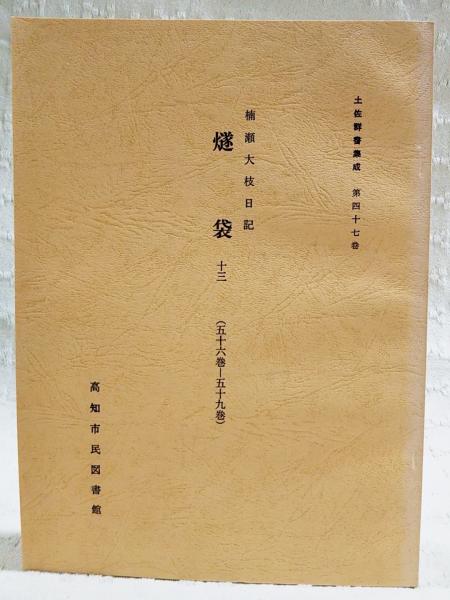 土佐群書集成　第四十七巻
楠瀬大枝日記
燧袋　十三　（五十六巻－五十九巻）
高知市民図書館